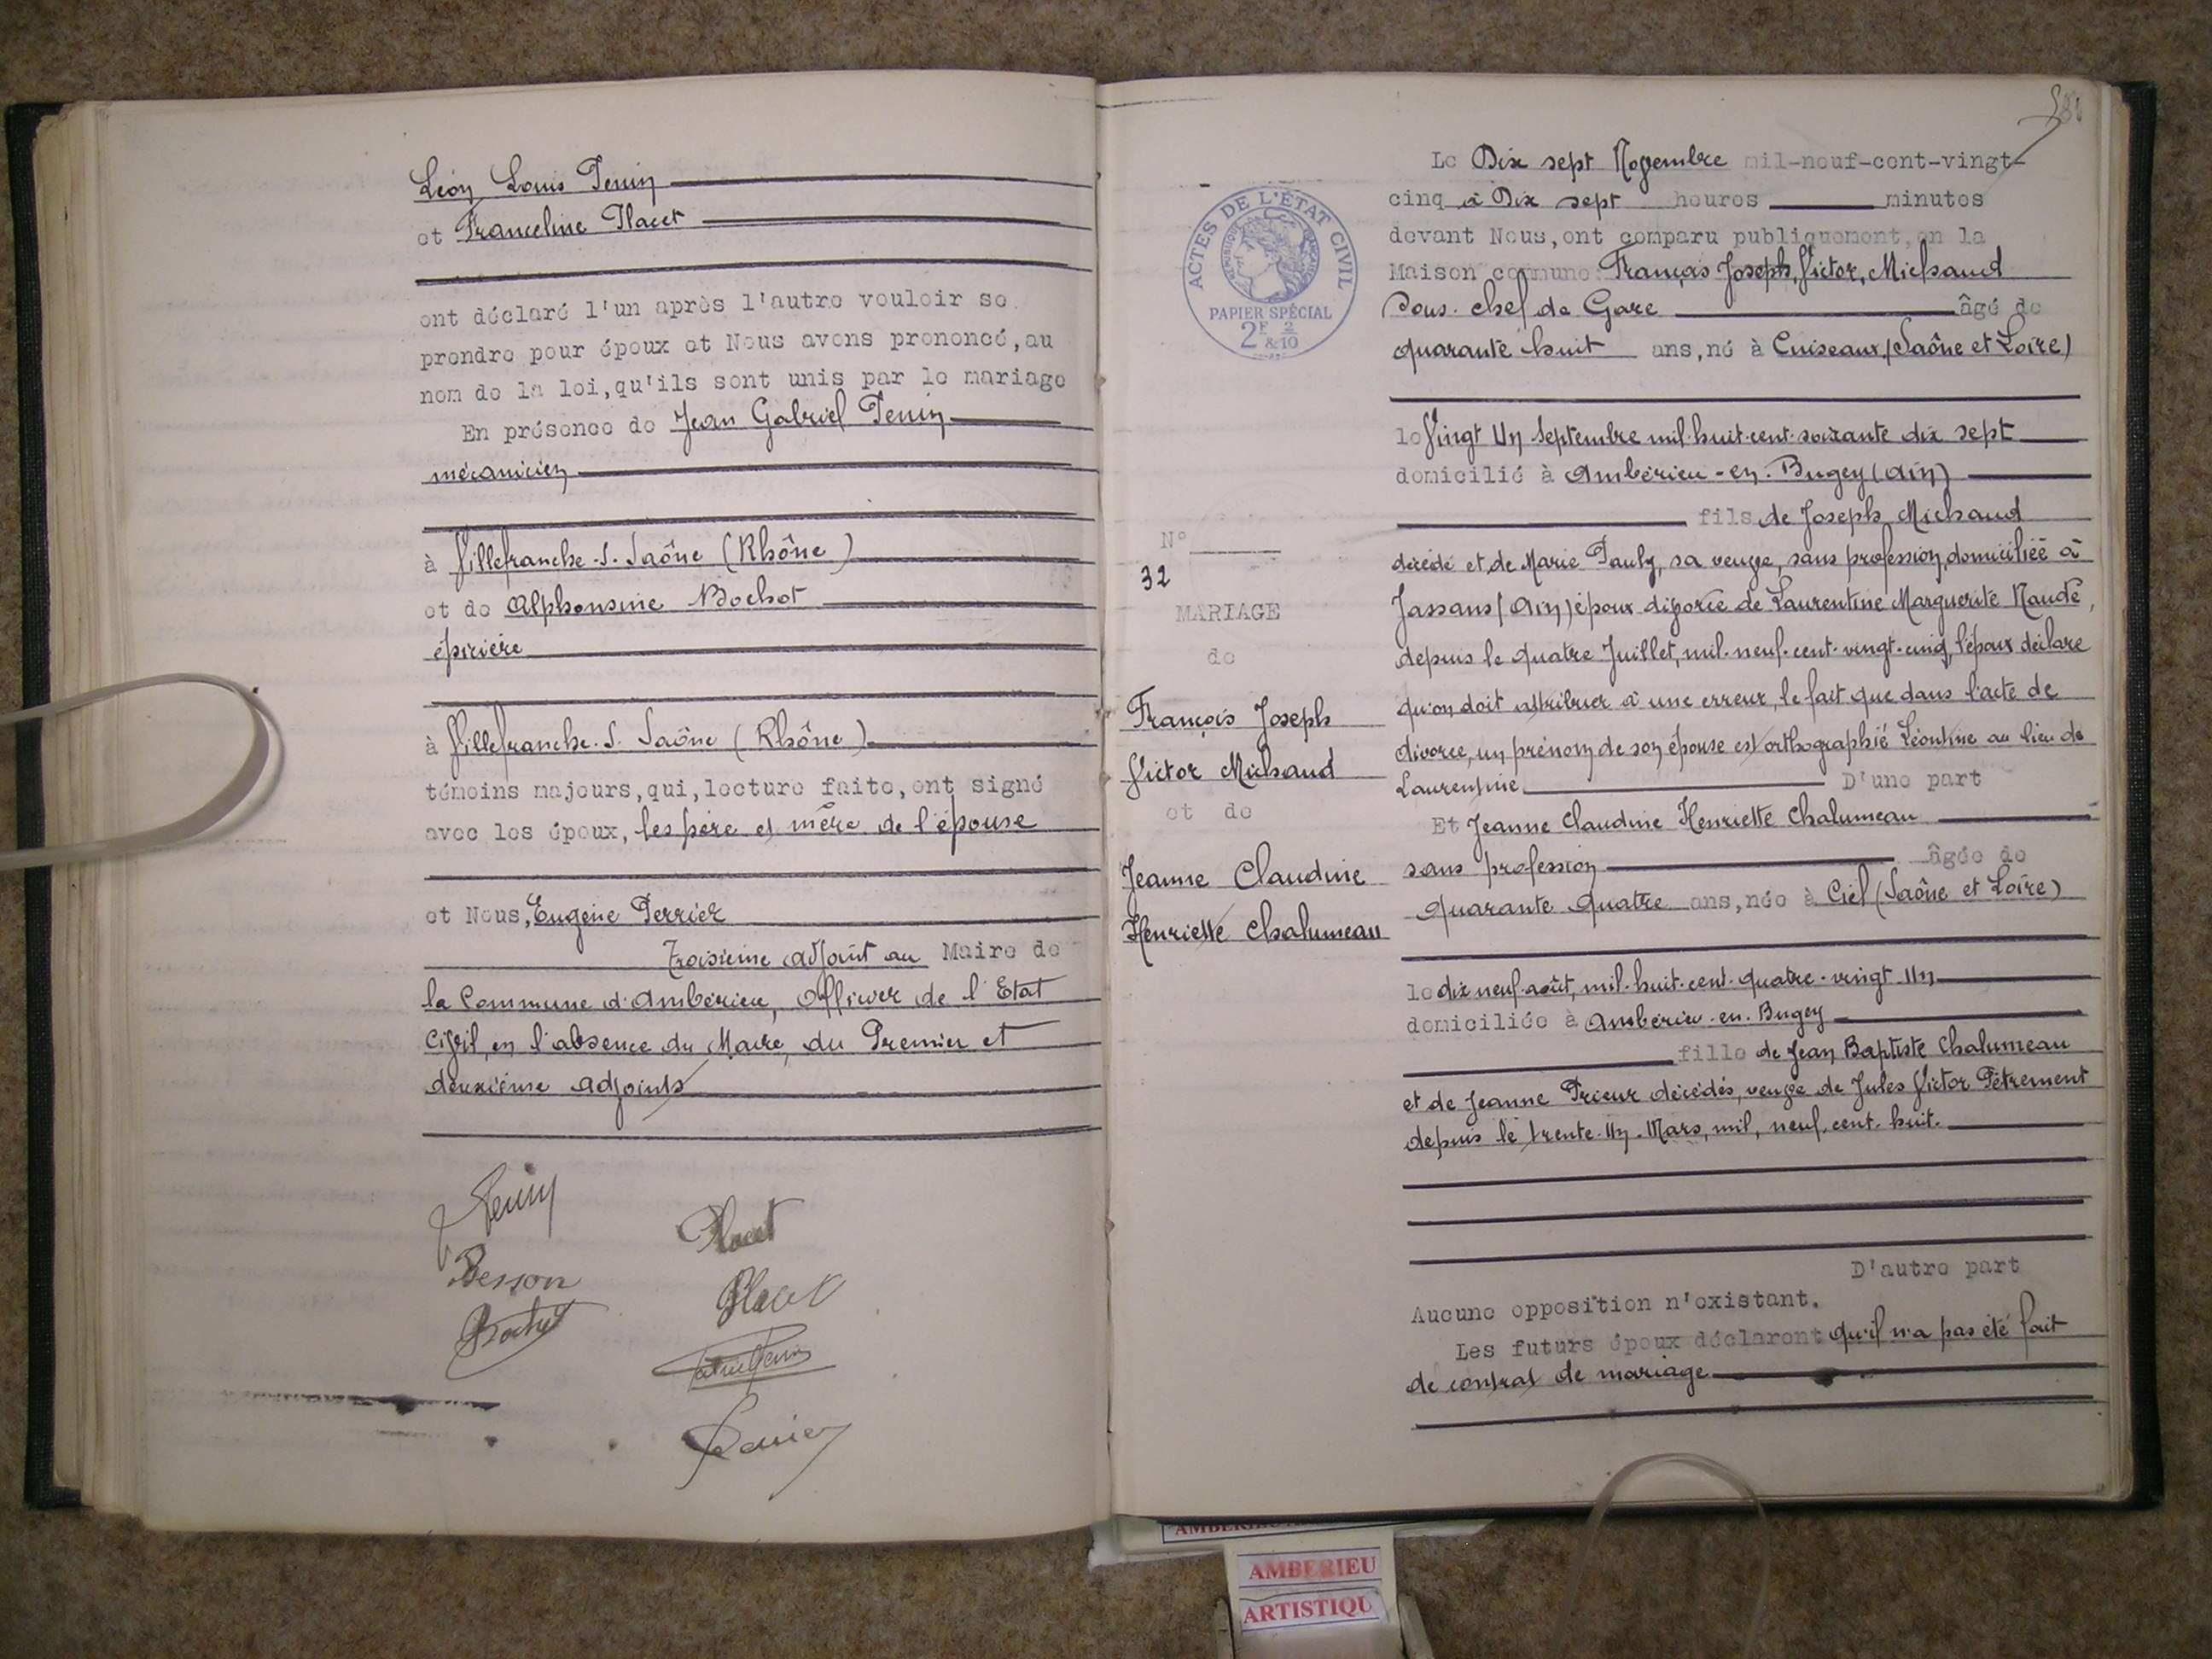 Léon Louis Penin
et Franceline Placet
ont déclaré l'un après l'autre vouloir se
prendre pour époux et Nous avons prononcé, au
nom de la loi, qu'ils sont unis par le mariage
En présence de Jean Gabriel Penin
mécanicien
à Villefranche-s-Saône (Rhône)
et de Alphonsine Bochot
épicière
à Villefranche-s-Saône (Rhône)
témoins majeurs, qui, lecture faite, ont signé
avec les époux, les père et mère de l'épouse
et Nous, Eugène Perrier
Troisième adjoint au Maire de
la Commune d'Ambérieu, Officier de l'Etat
Civil, en l'absence du Maire, du Premier et
deuxième adjoints
Penin
Placet
Besson
Placet
Bochot
Perrier
ACTES DE L'ÉTAT CIVIL
RÉPUBLIQUE FRANÇAISE
PAPIER SPÉCIAL
2F 2
&10
N°
32
MARIAGE
de
François Joseph
Victor Michaud
et de
Jeanne Claudine
Henriette Chalumeau
Le Dix sept Novembre mil-neuf-cent-vingt-
cinq à Dix sept heures minutes
devant Nous, ont comparu publiquement, en la
Maison commune François Joseph, Victor, Michaud
Sous-chef de Gare âgé de
quarante huit ans, né à Cuiseaux (Saône et Loire)
le Vingt Un Septembre mil-huit-cent-soixante dix sept
domicilié à Ambérieu-en-Bugey (Ain)
fils de Joseph Michaud
décédé et de Marie Pauly, sa veuve, sans profession, domiciliée à
Jassans (Ain) époux divorcé de Laurentine Marguerite Naude,
depuis le quatre Juillet, mil-neuf-cent-vingt-cinq, l'époux déclare
qu'on doit attribuer à une erreur, le fait que dans l'acte de
divorce, un prénom de son épouse est orthographié Léontine au lieu de
Laurentine D'une part
Et Jeanne Claudine Henriette Chalumeau
sans profession âgée de
quarante quatre ans, née à Ciel (Saône et Loire)
le dix neuf août, mil-huit-cent-quatre-vingt-Un
domiciliée à Ambérieu-en-Bugey
fille de Jean Baptiste Chalumeau
et de Jeanne Prieur décédés, veuve de Jules Victor Pètrement
depuis le trente-Un-Mars, mil, neuf-cent-huit.
D'autre part
Aucune opposition n'existant.
Les futurs époux déclarent qu'il n'a pas été fait
de contrat de mariage
AMBERIEU
ARTISTIQU